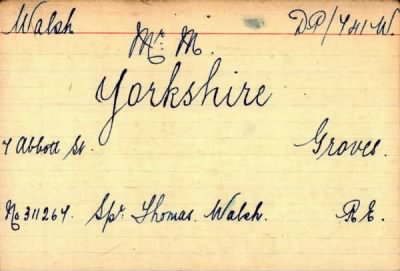 Walsh DP/741 W.
Mr. M.
Yorkshire
7 Abbott St. Groves.
No 311267. Spr. Thomas. Walsh. R.E.